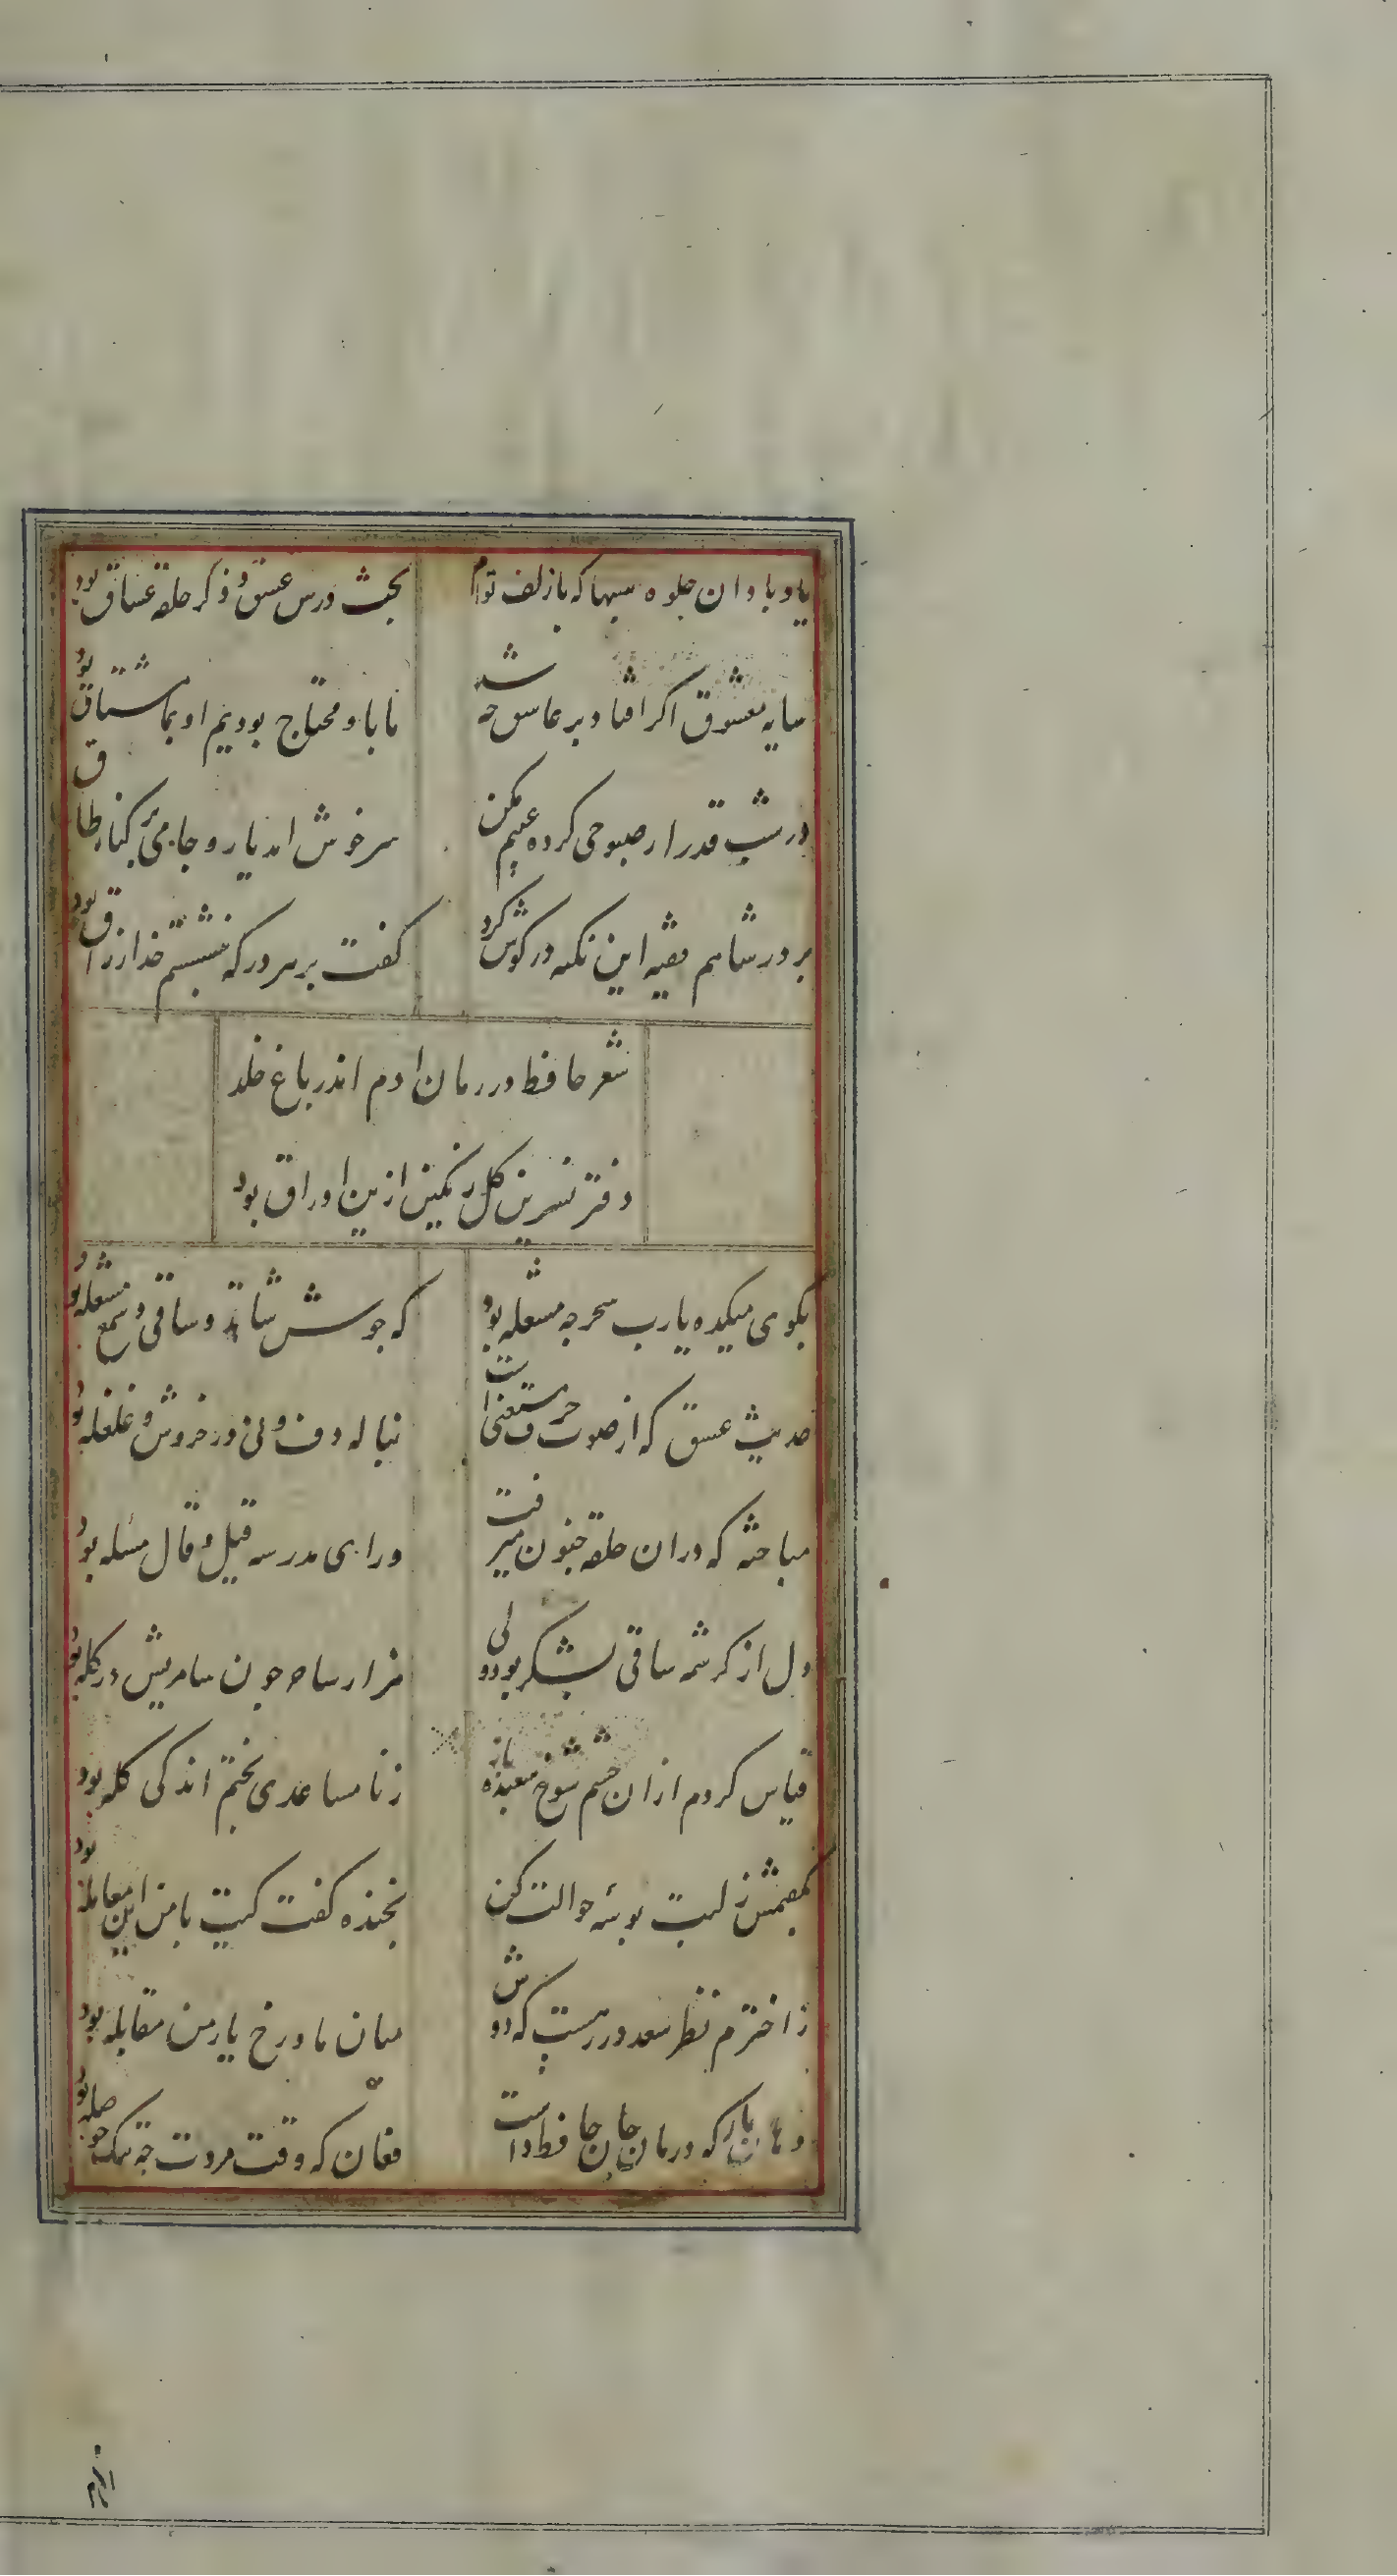 یاد باد ان جلوه شبها که با زلف توام
بحث درس عشق و ذکر حلقه عشاق بود
سایه معشوق اکر افتاد بر عاشق چه شد
ما باو محتاج بودیم او بما مشتاق بود
در شب قدر ار صبوحی کرده عیبم مکن
سرخوش امد یار و جامی بر کنار طاق
بر در شاهم فقیه این نکته در کوش کرد
کفت بر هر در که بنشستم خدا رزاق بود
شعر حافظ در زمان ادم اندر باغ خلد
دفتر نسرین کل رنکین ازین اوراق بود
بکوی میکده یارب سحر چه مشغله بود
که جوش شاهد و ساقی و شمع مشعله بود
حدیث عشق که از صوت حرف مستغنی است
بناله دف و نی در خروش و غلغله بود
مباحثه که دران حلقه جنون میرفت
ورای مدرسه قیل و قال مسئله بود
دل از کرشمه ساقی بشکر بود ولی
زنا مساعدی بختم اندکی کله بود
قیاس کردم ازان چشم شوخ معبده باز
هزار ساحر چون سامریش در کله بود
بکفتمش ز لبت بوسه حوالت کن
بخنده کفت کیت با من این معامله بود
ز اخترم نظر سعد در رهست که دوش
میان ماه و رخ یار من مقابله بود
دهان یار که درمان جان حافظ داشت
فغان که وقت مروت چه تنک حوصله بود